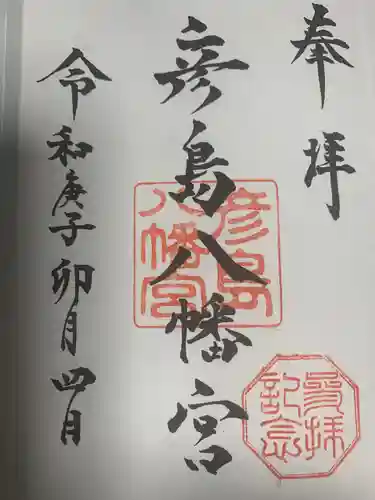 奉拝
彦島八幡宮
令和庚子卯月四日
彦島
八幡宮
参拝
記念